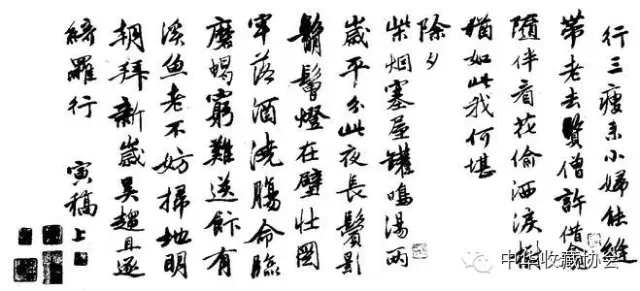 行三瘦来小婦能縫
帶老去賢僧許借衾
隨伴看花偷洒淚樹
猶如此我何堪
除夕
柴烟塞屋罐鳴湯兩
歲平分此夜長鬢影
鬅鬙燈在壁壮圖
牢落酒澆腸命臨
磨蝎窮難送飰有
溪魚老不妨掃地明
朝拜新歲吴趨且逐
綺羅行 寅稿上
中华收藏协会